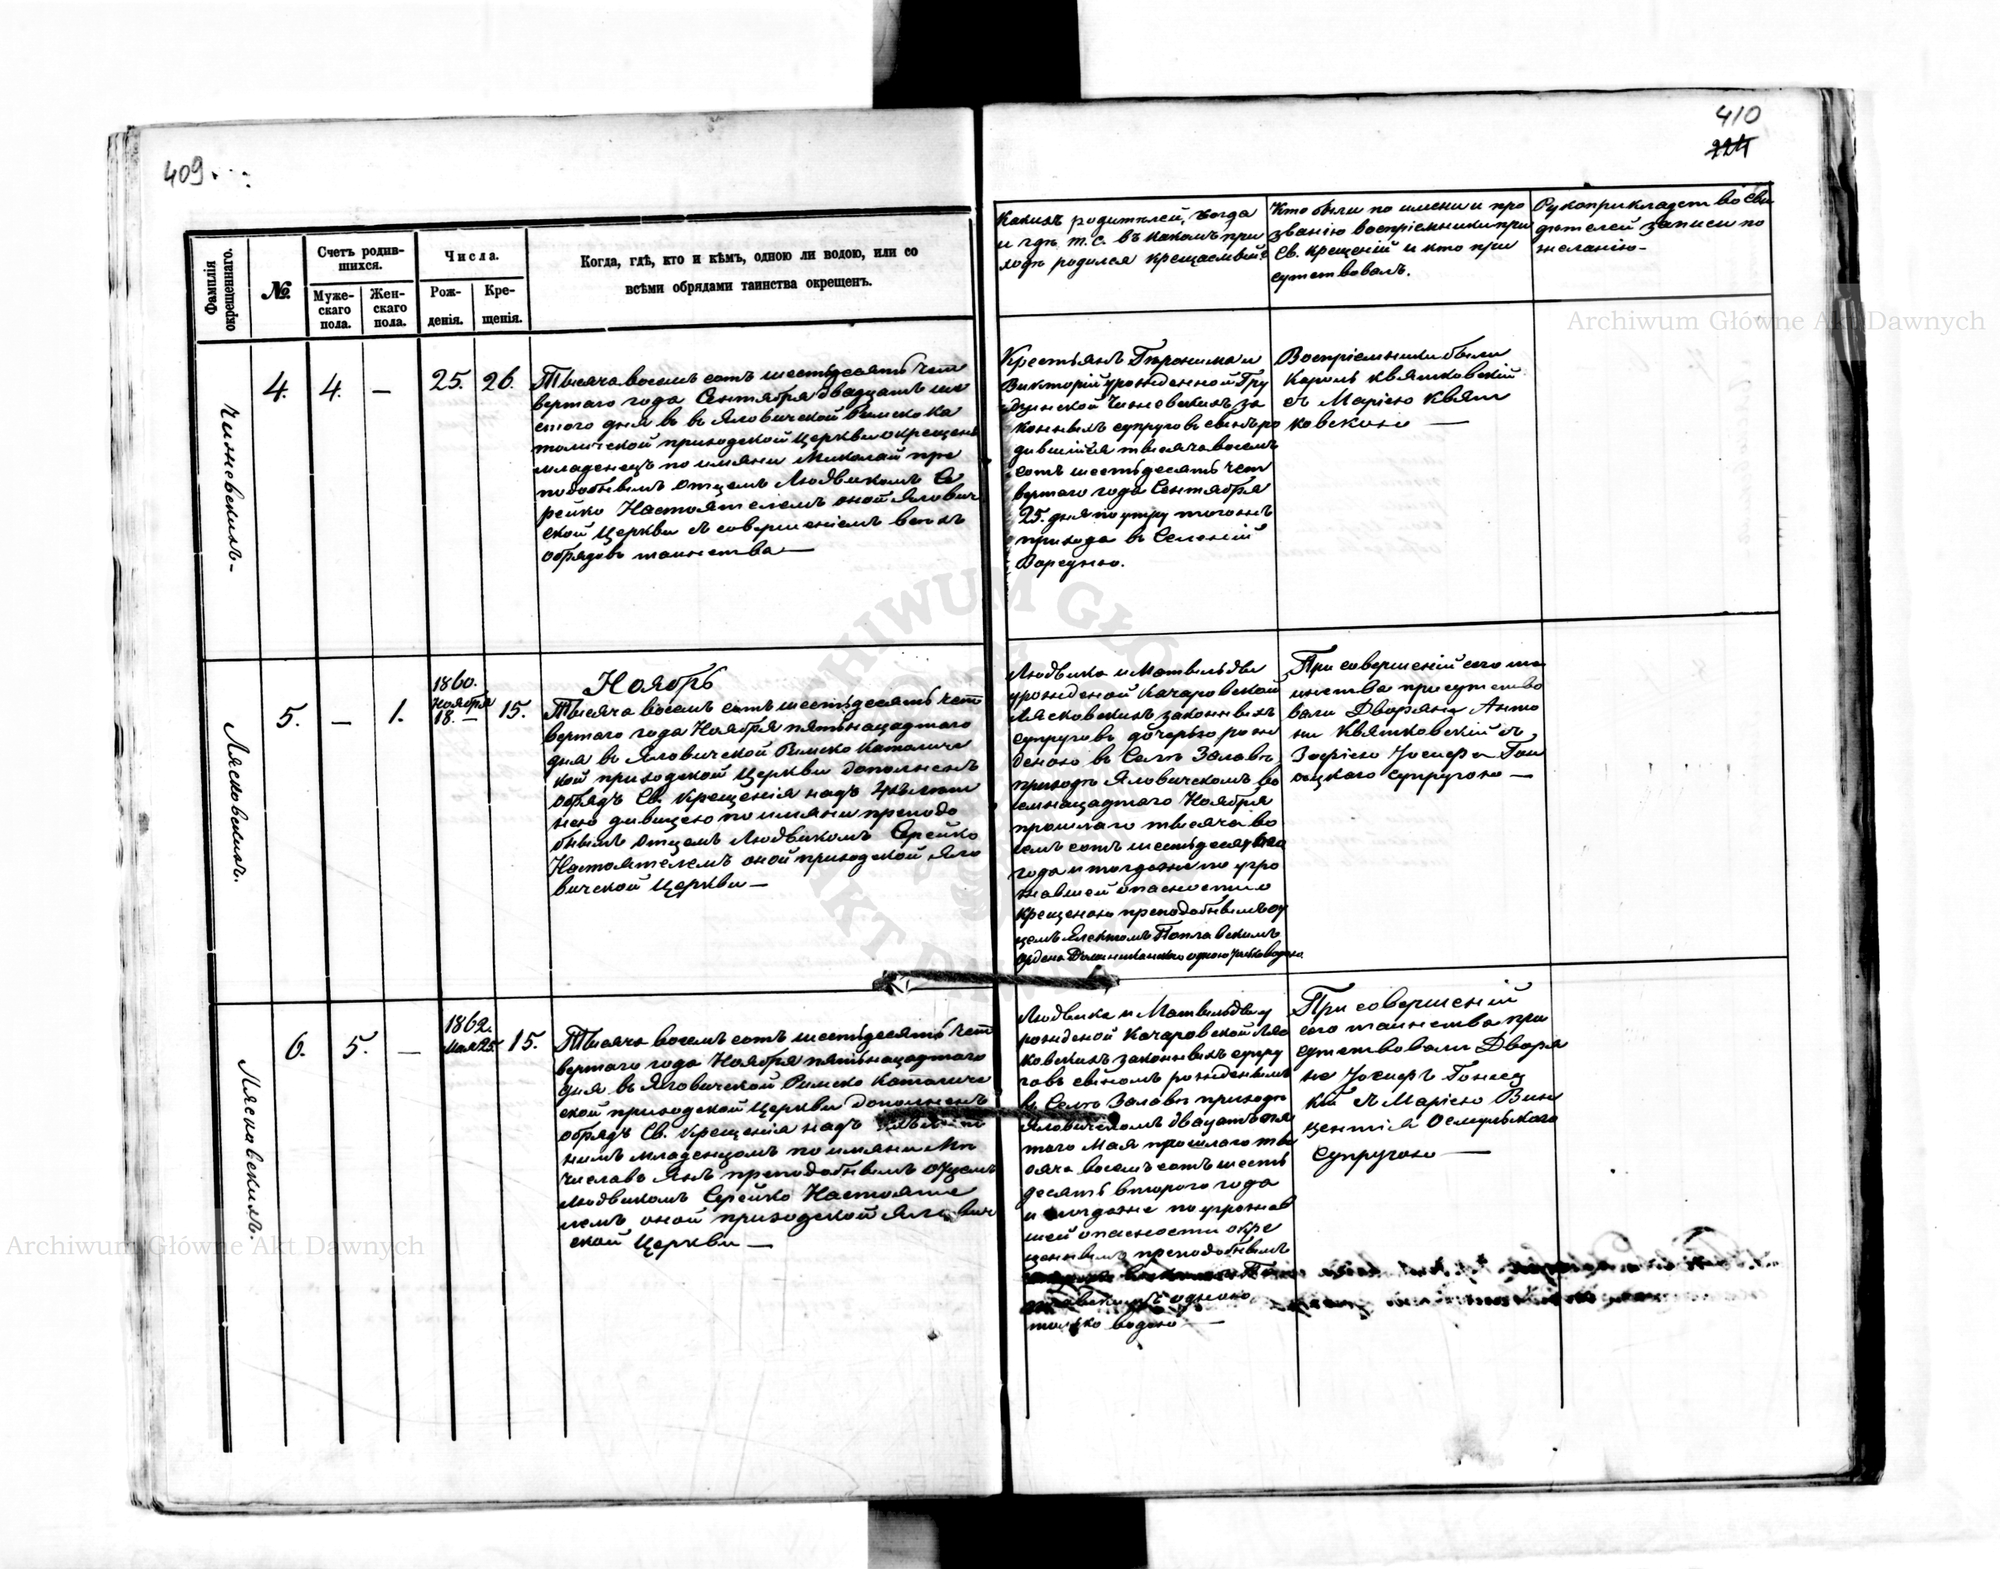 409
410
224
Фамілія окрещеннаго.
№.
Счетъ родившихся.
Мужескаго пола.
Женскаго пола.
Числа.
Рожденія.
Крещенія.
Когда, гдѣ, кто и кѣмъ, одною ли водою, или со
всѣми обрядами таинства окрещенъ.
Какихъ родителей, когда
и гдѣ т. е. въ какомъ при
ходѣ родился крещаемый?
Кто были по имени и про
званію воспріемники при
Св. крещеній и кто при
сутствовалъ.
Рукоприкладст во Сви
дѣтелей записи по
желанію.
4.
4.
—
25.
26.
Тысяча восемь сотъ шестьдесятъ чет
вертаго года Сентября двадцать ше
стого дня въ Яловичской Римско Ка
толической приходской Церкви окрещенъ
младенецъ по имяни Миколай пре
подобнымъ Отцемъ Людвикомъ Се
рейко Настоятелемъ оной Ялович
ской Церкви съ совершеніемъ всѣхъ
обрядовъ таинства —
Крестьянъ Гіронима и
Викторіи урожденной Гру
дзинской
конныхъ супруговъ сынъ ро
дившійся тысяча восемь
сотъ шестьдесятъ чет
вертаго года Сентября
25. дня по утру тогожъ
прихода въ Селеній
Воспріемники были
Кароль Квятковскій
съ Маріею Квят
ковскою —
Лясковскихъ.
5.
—
1.
1860.
Ноября
18. —
15.
Ноябрь
Тысяча восемь сотъ шестьдесятъ чет
вертаго года Ноября пятьнацадтаго
дня въ Яловичской Римско Католиче
кой приходской Церкви дополненъ
обрядъ Св. Крещенія надъ
нею дивицею по имяни преподо
бнымъ Отцемъ Людвикомъ Серейко
Настоятелемъ оной приходской Яло
вичской Церкви —
Людвика и Матильды
урожденой Качаровской
Лясковскихъ законныхъ
супруговъ дочерью рож
деною въ Селѣ Залавѣ
приходѣ Яловичскомъ во
семнацадтаго Ноября
прошлаго тысяча во
семь сотъ шестьдесятаго
года и тогдаже по угро
жавшей опасности
крещеною преподобнымъ от
цемъ Поплавскимъ
Ордена Доминиканскаго одною только водою
При совершеній сего та
инства присутство
вали Дворяне Анто
ни Квятковскій съ
Зофіею Іосифа Гон
сецкаго Супругою —
Лясковскихъ.
6.
5.
—
1862.
Мая 25.
15.
Тысяча восемь сотъ шестьдесятъ чет
вертаго года Ноября пятьнацадтаго
дня въ Яловичской Римско Католиче
ской приходской Церкви дополненъ
обрядъ Св. Крещенія надъ
нимъ младенцомъ по имяни Ме
числавъ Янъ преподобнымъ отцемъ
Людвикомъ Серейко Настояте
лемъ оной приходской Ялович
ской Церкви —
Людвика и Матильды у
рожденой Качаровской Ляс
ковскихъ законныхъ супру
говъ сыномъ рожденнымъ
въ Селѣ Залавѣ приходѣ
Яловичскомъ двацать пя
таго Мая прошлаго ты
сяча восемь сотъ шесть
десятъ второго года
и тогдаже по угрожав
шей опасности окре
щеннымъ преподобнымъ
По
плавскимъ одною
только водою —
При совершеній
сего таинства при
сутствовали Дворя
не Іосифъ Гонсец
кій съ Маріею Вин
центія Осмульскаго
Супругою —
Archiwum Główne Akt Dawnych
Archiwum Główne Akt Dawnych
ARCHIWUM GŁÓWNE AKT DAWNYCH